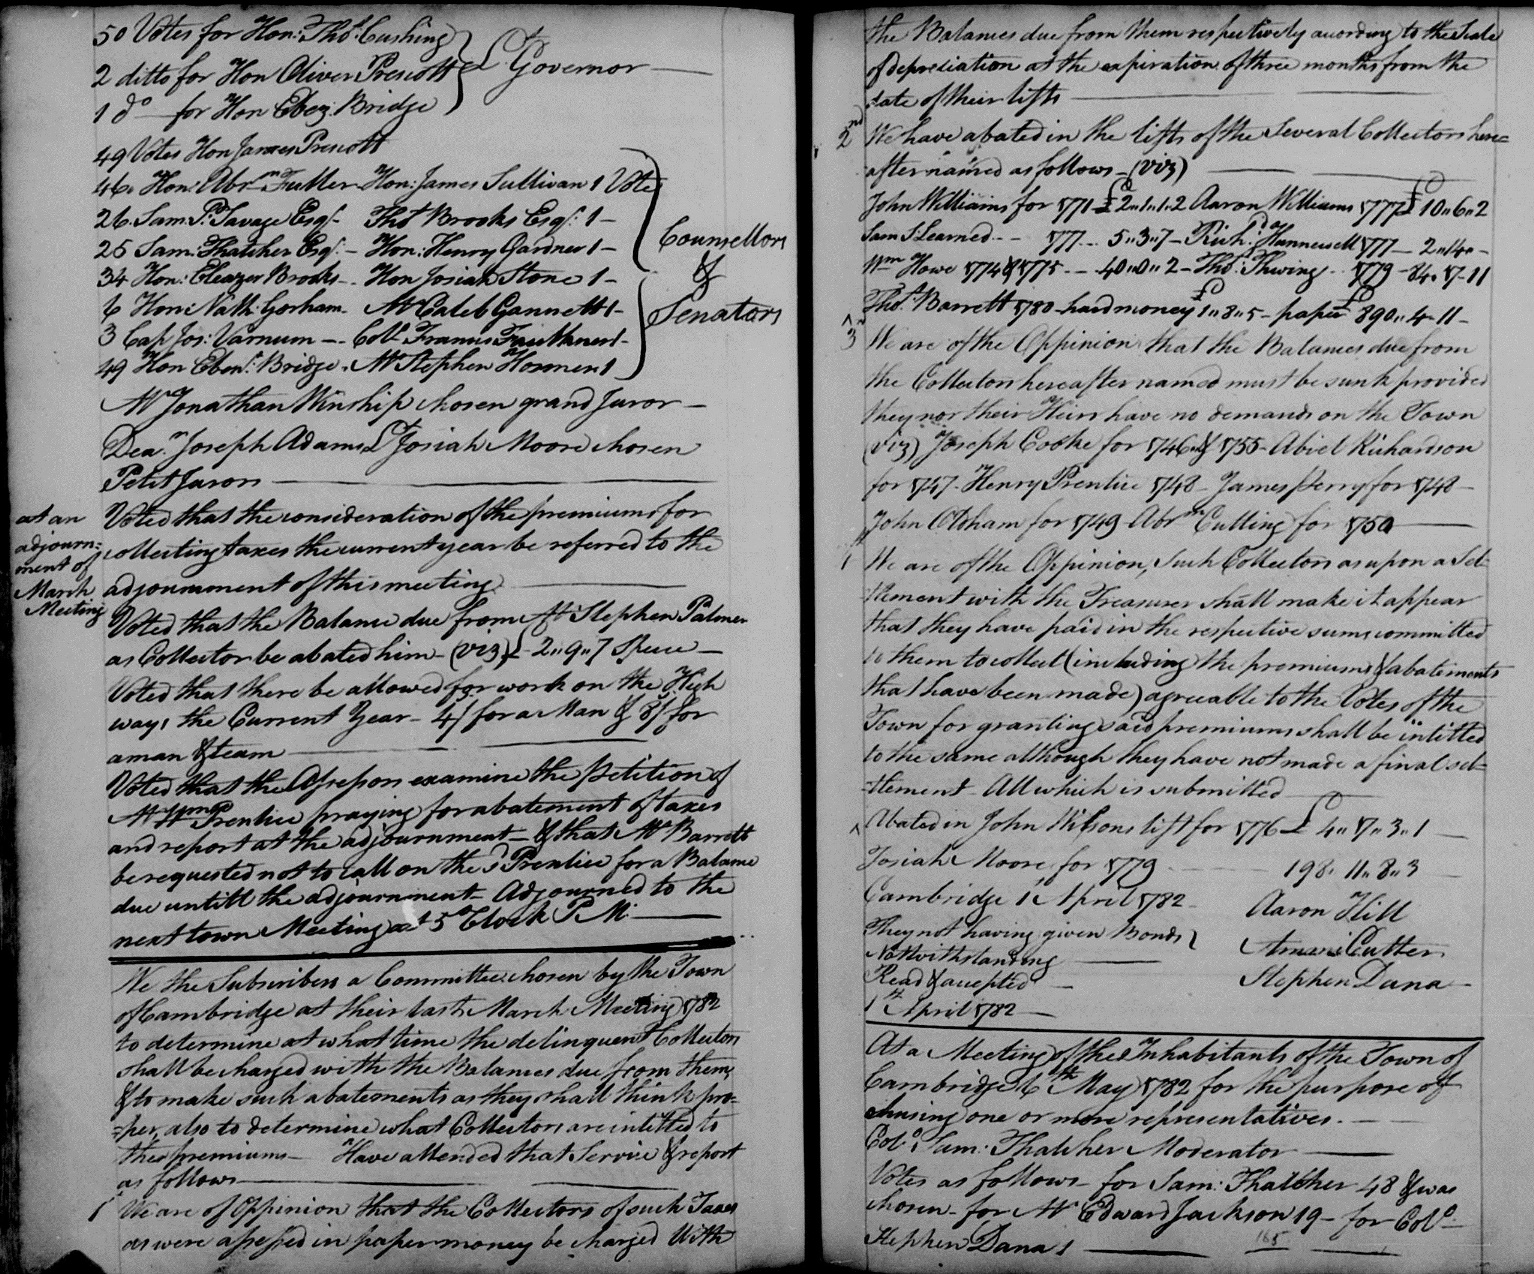 50 Votes for Hon: Thos. Cushing
2 ditto for Hon Oliver Prescott
1 do — for Hon Ebenz. Bridge
Lt Governor —
49 Votes Hon James Prescott
46. Hon: Abrm Fuller - Hon: James Sullivan 1 Vote
26. Sam. P. Savage Esqr. - Thos Brooks Esqr. 1 -
25 Sam: Thatcher Esqr. - Hon: Henry Gardner 1 -
34 Hon: Eleazer Brooks - Hon Josiah Stone 1 -
6 Hon: Nath: Gorham - Mr Caleb Gannett 1 -
3 Cap Jos: Varnum - Colo Francis Faulkner 1 -
49 Hon Ebenr: Bridge - Mr Stephen Hosmer 1
Counsellors
&
Senators
Mr Jonathan Winship chosen grand Juror —
Dea.n Joseph Adams Lt Josiah Moore chosen
Petit Jurors —
at an
adjourn=
ment of
March
Meeting
Voted that the consideration of the premiums for
collecting taxes the current year be referred to the
adjournment of this meeting —
Voted that the Balance due from Mr Stephen Palmer
as Collector be abated him - (viz) £ 2 .. 9 .. 7 Specie —
Voted that there be allowed for work on the High
ways the Current Year - 4/ for a Man & 8/ for
a man & team —
Voted that the Assessors examine the Petition of
Mr Wm Prentice praying for abatement of taxes
and report at the adjournment - & that Mr Barrett
be requested not to call on the sd Prentice for a Balance
due untill the adjournment - Adjourned to the
next town Meeting at 5 oClock P.M. —
We the Subscribers a Committee chosen by the Town
of Cambridge at their last March Meeting 1782
to determine at what time the delinquent Collectors
shall be charged with the Balances due from them,
& to make such abatements as they shall think pro=
=per, also to determine what Collectors are intitled to
their premiums — Have attended that Service & report
as follows —
1 We are of Oppinion that the Collectors of such Taxes
as were assessed in paper money be charged With
the Balances due from them respectively according to the Scale
of depreciation at the expiration of three months from the
date of their lists —
2nd We have abated in the lists of the Several Collectors here=
after named as follows - (viz)
John Williams for 1771 £ 2 .. 1 .. 1 .. 2 Aaron Williams 1777 £ 10 .. 6 .. 2
Sam S. Learned - - 1777 - 5 .. 3 .. 7 - Richd: Hunnewell 1777 — 2 .. 14 .. -
Wm Howe 1774 & 1775 - - 40 .. 0 .. 2 - Thos: Thwing - 1779 - 84 .. 17 - 11
Thos. Barrett 1780 - hard money £ 1 .. 8 .. 5 - paper £ 890 .. 4 - 11 -
3 We are of the Oppinion that the Balances due from
the Collectors hereafter named must be sunk provided
they nor their Heirs have no demands on the Town
(viz) Joseph Cooke for 1746 & 1755 - Abiel Richardson
for 1747 - Henry Prentice 1748 - James Perry for 1748 -
John Oldham for 1749 Abrm Cutting for 1750 —
We are of the Oppinion, Such Collectors as upon a Set=
tlement with the Treasurer shall make it appear
that they have paid in the respective sums committed
to them to collect (including the premiums & abatements
that have been made) agreeable to the Votes of the
Town for granting said premiums shall be intitled
to the same although they have not made a final set=
=tlement - All which is submitted —
Abated in John Wilsons list for 1776 £ 4 .. 17 .. 3 .. 1 —
Josiah Moore, for 1779 — 198 .. 11 .. 8 .. 3
Cambridge 1st April 1782 -
Aaron Hill
Amari Cutter
Stephen Dana —
They not having given Bonds
Notwithstanding —
Read & accepted —
1st April 1782 —
At a Meeting of the Inhabitants of the Town of
Cambridge 6th May 1782 for the purpose of
chusing one or more representatives. —
Colo: Sam: Thatcher Moderator —
Votes as follows - for Sam: Thatcher 48 & was
chosen - for Mr Edward Jackson 19 - for Colo
Stephen Dana 1 —
165